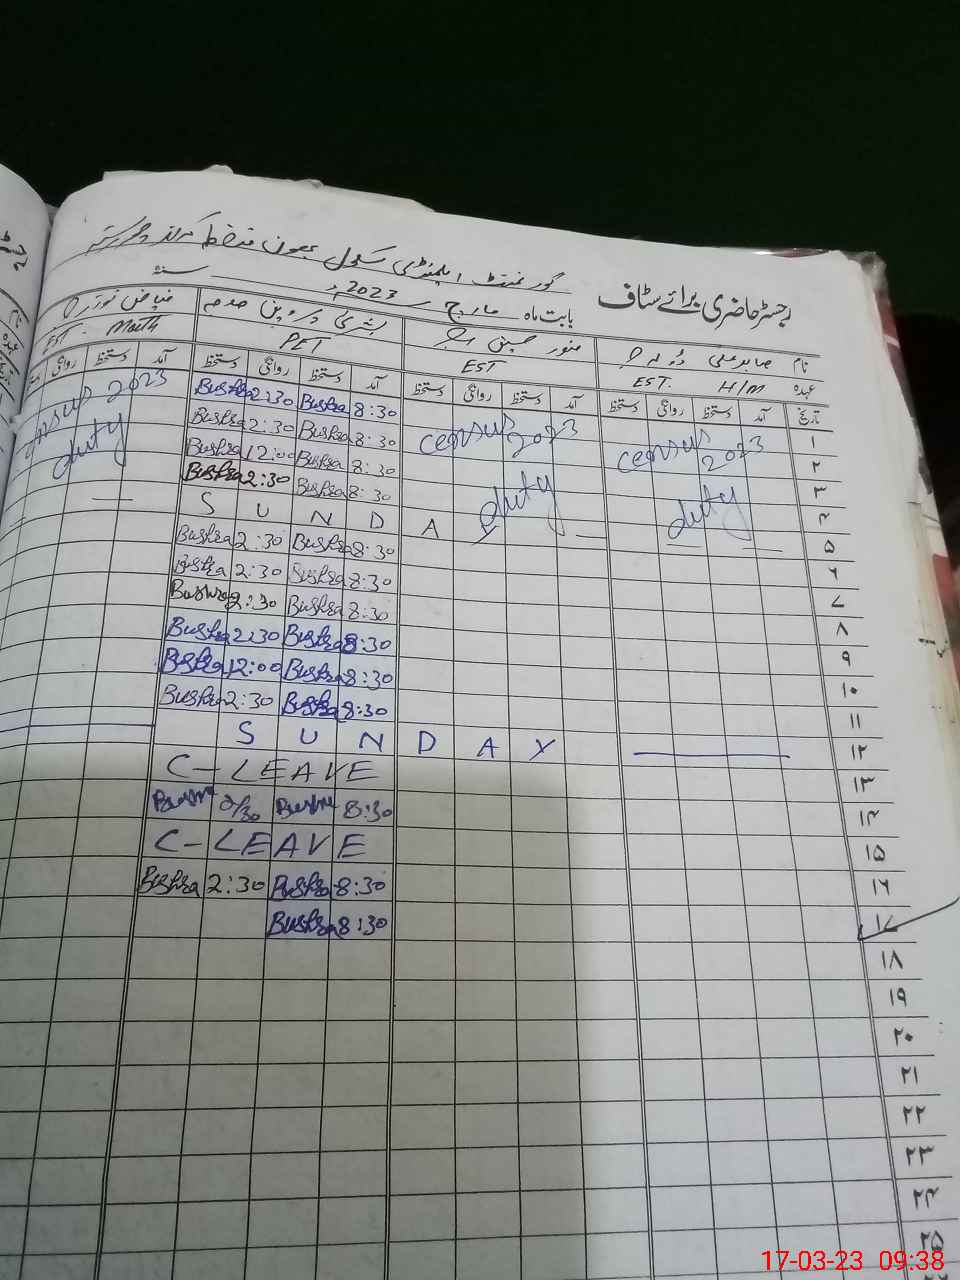 رجسٹر حاضری برائے سٹاف
گورنمنٹ ایلیمنٹری سکول
بابت ماہ مارچ 2023ء سنہ
نام صابر علی منور حسین بشریٰ پروین
عہدہ EST. H/M EST PET EST. Math
تاریخ آمد دستخط روانگی دستخط آمد دستخط روانگی دستخط آمد دستخط روانگی دستخط آمد دستخط روانگی
۱ 8:30 Bushra 2:30 Bushra
۲ 8:30 Bushra 2:30 Bushra
۳ 8:30 Bushra 12:00 Bushra
۴ 8:30 Bushra 2:30 Bushra
census 2023 duty
census 2023 duty
census 2023 duty
۵ S U N D A Y
۶ 8:30 Bushra 2:30 Bushra
۷ 8:30 Bushra 2:30 Bushra
۸ 8:30 Bushra 2:30 Bushra
۹ 8:30 Bushra 2:30 Bushra
۱۰ 8:30 Bushra 12:00 Bushra
۱۱ 8:30 Bushra 2:30 Bushra
۱۲ S U N D A Y
۱۳ C-LEAVE
۱۴ 8:30 Bushra 2/30 Bushra
۱۵ C-LEAVE
۱۶ 8:30 Bushra 2:30 Bushra
۱۷ 8:30 Bushra
۱۸
۱۹
۲۰
۲۱
۲۲
۲۳
۲۴
۲۵
17-03-23 09:38